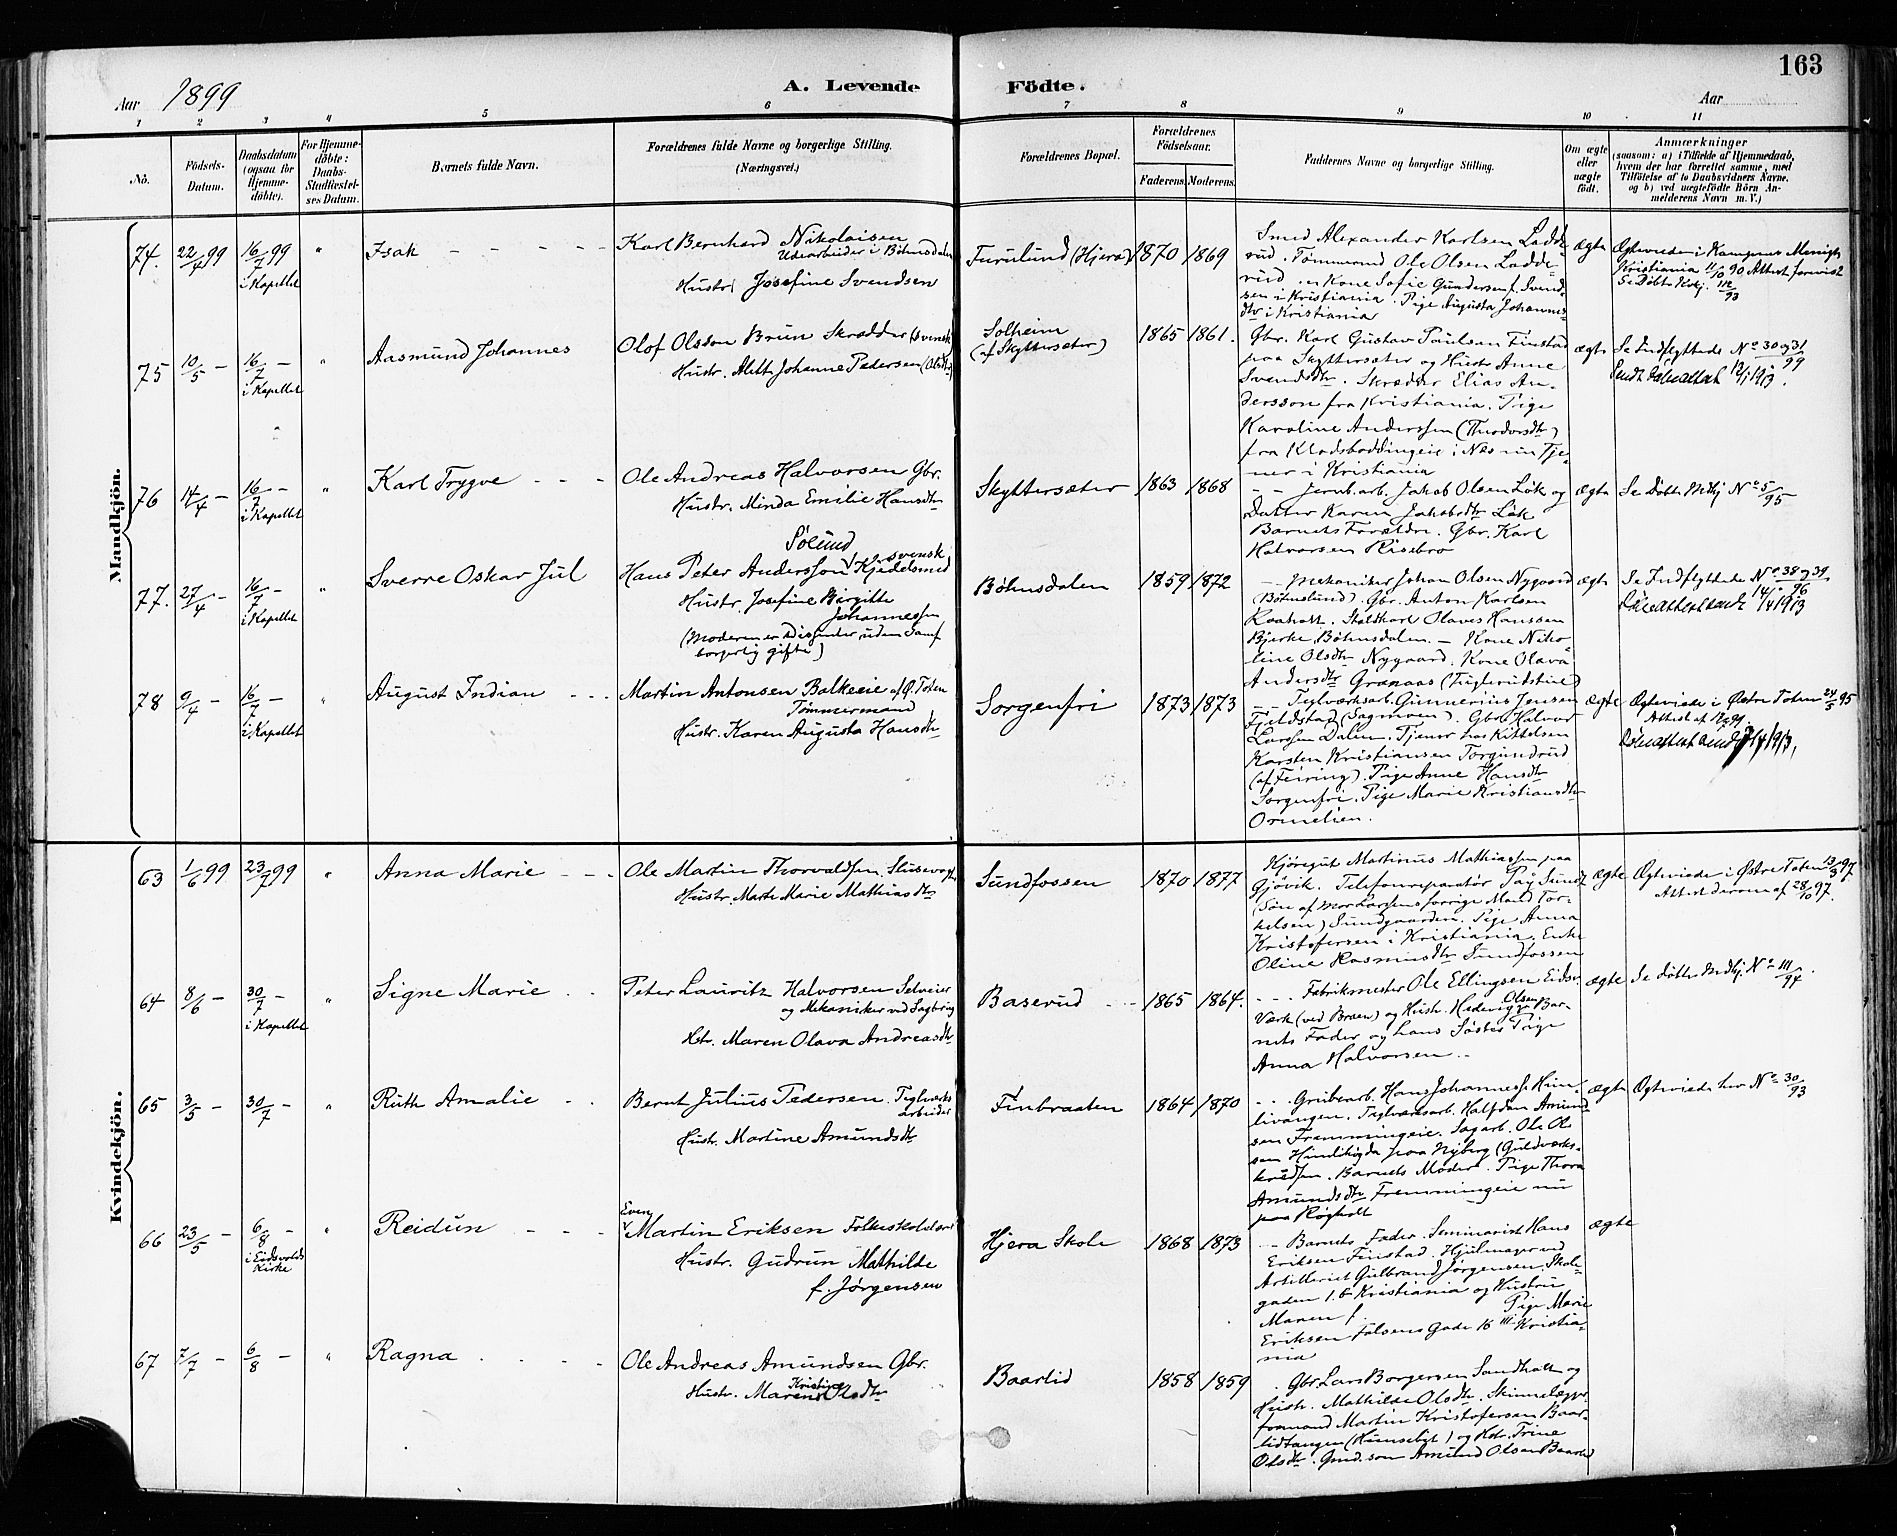 163
Aar 1899
A. Levende Födte.
Aar
1 2 3 4 5 6 7 8 9 10 11
No.
Födsels-
Datum.
Daabsdatum
(ogsaa for
Hjemme-
döbte).
For Hjemme-
döbte:
Daabs-
Stadfæstel-
ses Datum.
Barnets fulde Navn.
Forældrenes fulde Navne og borgerlige Stilling.
(Næringsvei.)
Forældrenes Bopæl.
Forældrenes
Födselsaar.
Faderens. Moderens.
Faddernes Navne og borgerlige Stilling.
Om ægte
eller
uægte
födt.
Anmærkninger
(saasom: a) i Tilfælde af Hjemmedaab,
hvem der har forrettet samme, med
Tilföielse af to Daabsvidners Navne,
og b) ved uægtefödte Börn An-
melderens Navn m. V.)
Mandkjön.
74. 22/4 99 16/7 99 " Isak
i Kapellet
Karl Bernhard Nikolaisen
Udearbeider i Bøhmsdalen
Hustr. Josefine Svendsen
Furulund (Hjera) 1870 1869
Smed Alexander Karlsen Ladde-
rud. Tømmermd Ole Olsen Ladde-
rud. Kone Sofie Gundersen f. Svend-
sen i Kristiania. Pige Augusta Johannes-
dtr i Kristiania
ægte
Ægteviede i Kampens Menigh.
Kristiania 11/10 90 Attest forevist
Se Døbte Kvkj. 112/93
75 10/5 - 16/7 - " Aasmund Johannes
i Kapellet
Olof Olsson Brun Skrædder (svensk)
Hustr. Alett Johanne Pedersen (Olsdtr)
Solheim
(af Skyttersæter)
1865 1861.
Gbr. Karl Gustav Paulsen Finstad
paa Skyttersæter og Hustr. Anne
Svendsdtr. Skrædder Elias An-
dersson fra Kristiania. Pige
Karoline Anderssen (Theodorsdtr)
fra Kladsboddingeie i Næs nu Tje-
ner i Kristiania
ægte
Se Indflyttede No 30 og 31/99
Sendt daabsattest 12/1 1913.
76 14/4 - 16/7 - " Karl Trygve
i Kapellet
Ole Andreas Halvorsen Gbr.
Hustr. Minda Emilie Hansdtr
Skyttersæter 1863 1868
Jernb.arb. Jakob Olsen Løk og
Datter Karen Jakobsdtr Løk
Barnets Forældre. Gbr. Karl
Halvorsen Risebro
ægte
Se Døbte Mdkj No 5/95
77. 27/4 - 16/7 - " Sverre Oskar Jul
i Kapellet
Sølund
Hans Peter Andersson Kjedelsmed svensk
Hustr. Josefine Birgitte
Johannessen
(Moderen er Dissenter, uden Samf
borgerlig gifte)
Bøhmsdalen 1859 1872
Mekaniker Johan Olsen Nygaard
(Bøhnslund). Gbr. Anton Karlsen
Laaholt. Staldkarl Olaves Hanssen
Bjerke, Bøhmsdalen. - Kone Niko-
line Olsdtr Nygaard. Kone Olava
Andersdtr Grænaas
ægte
Se Indflyttede No 38 og 39/96
78 9/4 - 16/7 - " August Indian
i Kapellet
Martin Antonsen Balkeeie af Ø. Toten
Tømmermand
Hustr. Karen Augusta Hansdtr
Sorgenfri 1873 1873
Teglværksarb. Gunnerius Jensen
Fjeldstad (Sagmoen). Gbr. Halvor
Larsen Dalen. Tjener hos Kittelsen
Karsten Kristiansen Torgundrud
(af Feiring). Pige Anne Hansdtr
Sorgenfri. Pige Marie Kristiansdtr
Ormelien.
ægte
Ægteviede i Østre Toten 24/5 95
Kvindekjön.
63 1/6 99 23/7 99 " Anna Marie
Ole Martin Thorvaldsen Slusevogter
Hustr. Marte Marie Mathiasdtr
Sundfossen 1870 1877
Kjøregut Martinus Mathiassen paa
Gjøvik. Telefonreparatør Paij Sund
(Søn af Mor Larsens forrige Mand Tor-
kelsen) Sundgaarden. Pige Anna
Kristofersen i Kristiania. Enke
Oline Rasmusdtr Sundfossen
ægte
Ægteviede i Østre Toten 13/3 97.
Attest derom af 28/10 97.
64 8/6 - 30/7 - " Signe Marie
i Kapellet
Peter Lauritz Halvorsen Selveier
og Mekaniker ved Sagbrug
Hstr. Maren Olava Andreasdtr
Baserud 1865 1864.
Fabrikmester Ole Ellingsen Eidsv.
Værk (ved Broen) og Hustr. Hedevig Olsen Bar-
nets Fader og hans Søster Pige
Anna Halvorsen
ægte
Se døbte Mdkj. No 111/94.
65 3/5 - 30/7 - " Ruth Amalie
Bernt Julius Pedersen. Teglværks
arbeider
Hustr. Martine Amundsdtr
Finbraaten 1864 1870
Grubearb. Hans Johanness. Him-
livangen. Teglværksarb. Halfdan Amund-
sen Fremmingeie. Sagarb. Ole Ol-
sen Hindihøgda paa Nyberg (Guldværks-
Barnets Moder. Pige Thora
Amundsdtr Fremmingeie nu
paa Røgholt
ægte
Ægteviede her No 30/93
66 23/5 - 6/8 - " Reidun
i Eidsvolds
Kirke
Even
Martin Eriksen Folkeskolelærer
Hustr. Gudrun Mathilde
f. Jørgensen
Hjera Skole 1868 1873
Barnets Fader. Seminarist Hans
Eriksen Finstad. Hjulmager ved
Artilleriet Gulbrand Jørgensen, Skole-
gaden 1.b Kristiania og Hustru
Maren f. Pige Marie
Eriksen Falsens Gade 16 III Kristia-
nia
ægte
67 7/7 - 6/8 - " Ragna
Ole Andreas Amundsen Gbr.
Hustr. Maren Kristine Olsdtr
Baarlid 1858 1859
Gbr Lars Borgersen Sandholt og
Hustr. Mathilde Olsdtr. Skinnelægger
formand Martin Kristofersen Baar-
lidtangen (Hunsebyt) og Hstr. Trine
Olsdtr. Gmd.søn Amund Olsen Baarlid